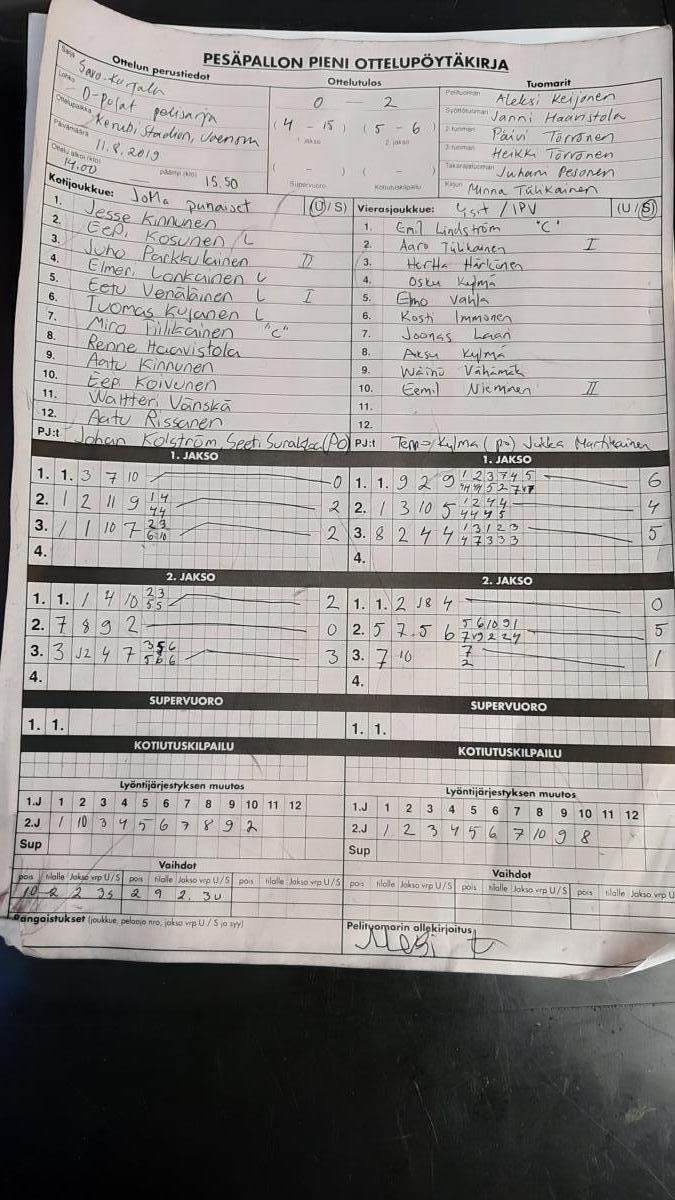 PESÄPALLON PIENI OTTELUPÖYTÄKIRJA
Ottelun perustiedot
Sarja Savo-Karjala
Lohko D-Pojat
Ottelupaikka Kerubi Stadion, Joensuu
Päivämäärä 11.8.2019
Ottelu alkoi (klo) 14.00 päättyi (klo) 15.50
Ottelutulos
0 – 2
( 4 – 15 ) ( 5 – 6 )
1. jakso 2. jakso
( – ) ( – )
Supervuoro Kotiutuskilpailu
Tuomarit
Pelituomari Aleksi Keijonen
Syöttötuomari Janni Haaristola
2-tuomari Päivi Törrönen
3-tuomari Heikki Törrönen
Takarajatuomari Juhani Pesonen
Kirjuri Minna Tiihkainen
Kotijoukkue: JoMa punaiset (U/S)
1. Jesse Kinnunen
2. Eepi Kosunen L
3. Juho Parkkulainen II
4. Elmeri Lonkainen L
5. Eetu Venäläinen L I
6. Tuomas Kujanen L
7. Miro Tiilikainen "C"
8. Renne Haavistola
9. Aatu Kinnunen
10. Eepi Koivunen
11. Waltteri Vänskä
12. Aatu Rissanen
PJ:t Johan Kolström (PO)
Vierasjoukkue: / IPV (U/S)
1. Emil Lindström "C"
2. Aaro Tiihkainen I
3. Hertta Härkönen
4. Osku Kylmä
5. Elmo Vahla
6. Kosti Immonen
7. Joonas Laari
8. Aksu Kylmä
9. Wäinö Vähämäk
10. Eemil Nieminen II
11.
12.
PJ:t Kylmä (po) Jukka Martikainen
1. JAKSO
1. 1. 3 7 10 0
2. 1 2 11 9 1 4 2
4 4
3. 1 1 10 7 2 3 2
6 10
4.
1. JAKSO
1. 1. 9 2 9 1 2 3 7 4 5 6
2. 1 3 10 5 1 2 4 4 4
4 4 4 5
3. 8 2 4 4 1 3 1 2 3 5
4 7 3 3 3
4.
2. JAKSO
1. 1. 1 4 10 2 3 2
5 5
2. 7 8 9 2 0
3. 3 12 4 7 3 5 6 3
5 6 6
4.
2. JAKSO
1. 1. 2 18 4 0
2. 5 7 5 6 5 6 10 9 1 5
7 9 2 2 4
3. 7 10 7 1
2
4.
SUPERVUORO
1. 1.
SUPERVUORO
1. 1.
KOTIUTUSKILPAILU
KOTIUTUSKILPAILU
Lyöntijärjestyksen muutos
1.J 1 2 3 4 5 6 7 8 9 10 11 12
2.J 1 10 3 4 5 6 7 8 9 2
Sup
Lyöntijärjestyksen muutos
1.J 1 2 3 4 5 6 7 8 9 10 11 12
2.J 1 2 3 4 5 6 7 10 9 8
Sup
Vaihdot
pois tilalle Jakso vrp U/S pois tilalle Jakso vrp U/S pois tilalle Jakso vrp U/S
10 2 2 3s 2 9 2. 3u
Vaihdot
pois tilalle Jakso vrp U/S pois tilalle Jakso vrp U/S pois tilalle Jakso vrp U
Rangaistukset (joukkue, pelaaja nro, jakso vrp U / S ja syy)
Pelituomarin allekirjoitus